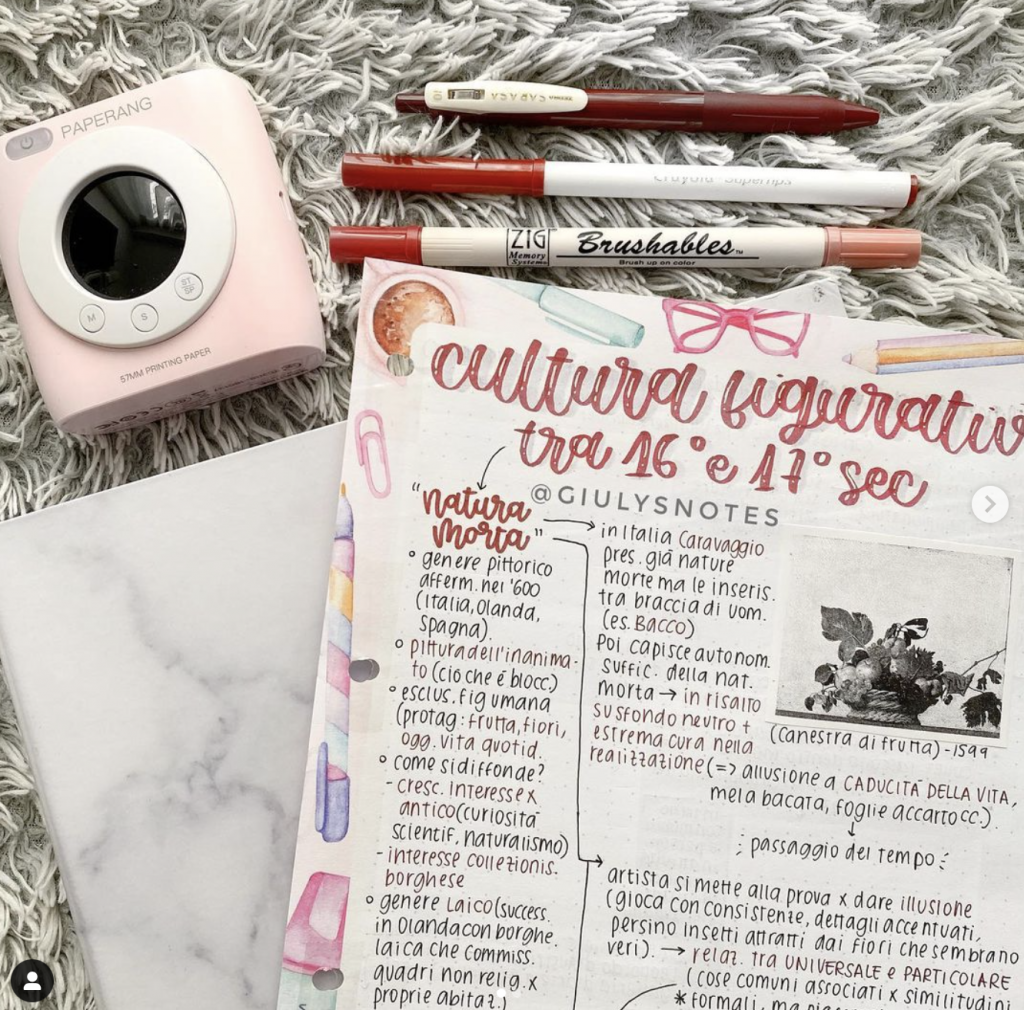 PAPERANG
M
S
ST
SP
57MM PRINTING PAPER
SARASA
Crayola Supertips
ZIG
Memory
Systems
Brushables™
Brush up on color
cultura figurativ
tra 16° e 17° sec
@GIULYSNOTES
"natura
morta"
° genere pittorico
afferm. nel '600
(Italia, Olanda,
Spagna).
° pittura dell'inanima-
to (ciò che è blocc.)
° esclus. fig umana
(protag: frutta, fiori,
ogg. vita quotid.
° come si diffonde?
- cresc. interesse x
antico (curiosità
scientif, naturalismo)
- interesse collezionis.
borghese
° genere LAICO (success.
in Olanda con borghe.
laica che commiss.
quadri non relig. x
proprie abitaz.)
in Italia Caravaggio
pres. già nature
morte ma le inseris.
tra braccia di uom.
(es. BACCO)
Poi capisce autonom.
suffic. della nat.
morta → in risalto
su sfondo neutro +
estrema cura nella
realizzazione (=> allusione a CADUCITÀ DELLA VITA,
mela bacata, foglie accartocc.)
(Canestra di frutta) - 1599
↓
passaggio del tempo
artista si mette alla prova x dare illusione
(gioca con consistenze, dettagli accentuati,
persino insetti attratti dai fiori che sembrano
veri). → relaz. tra UNIVERSALE e PARTICOLARE
(cose comuni associati x similitudini
* formali, ma